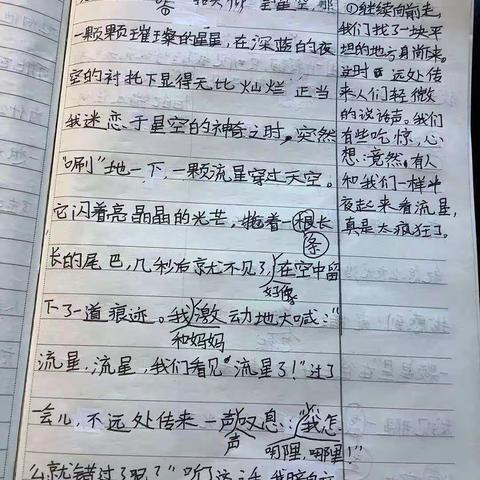 答 抬头仰 星星空 那
一颗颗璀璨的星星,在深蓝的夜
空的衬托下显得无比灿烂 正当
我迷恋于星空的神奇之时,突然
"唰"地一下,一颗流星穿过天空。
它闪着亮晶晶的光芒,拖着一根长
条
长的尾巴,几秒后就不见了,在空中留
好像
下了一道痕迹。我激动地大喊:"
和妈妈
流星,流星,我们看见"流星了!"过了
一会儿,不远处传来一声叹息:"我怎
声
哪哩,哪哩!"
么就错过了呢?"听了这话,我
①继续向前走,
我们找了一块平
坦的地方
这时 远处传
来人们轻微
的说话声。我们
有些吃惊,心
想:竟然有人
和我们一样半
夜起来看流星,
真是太疯狂了。